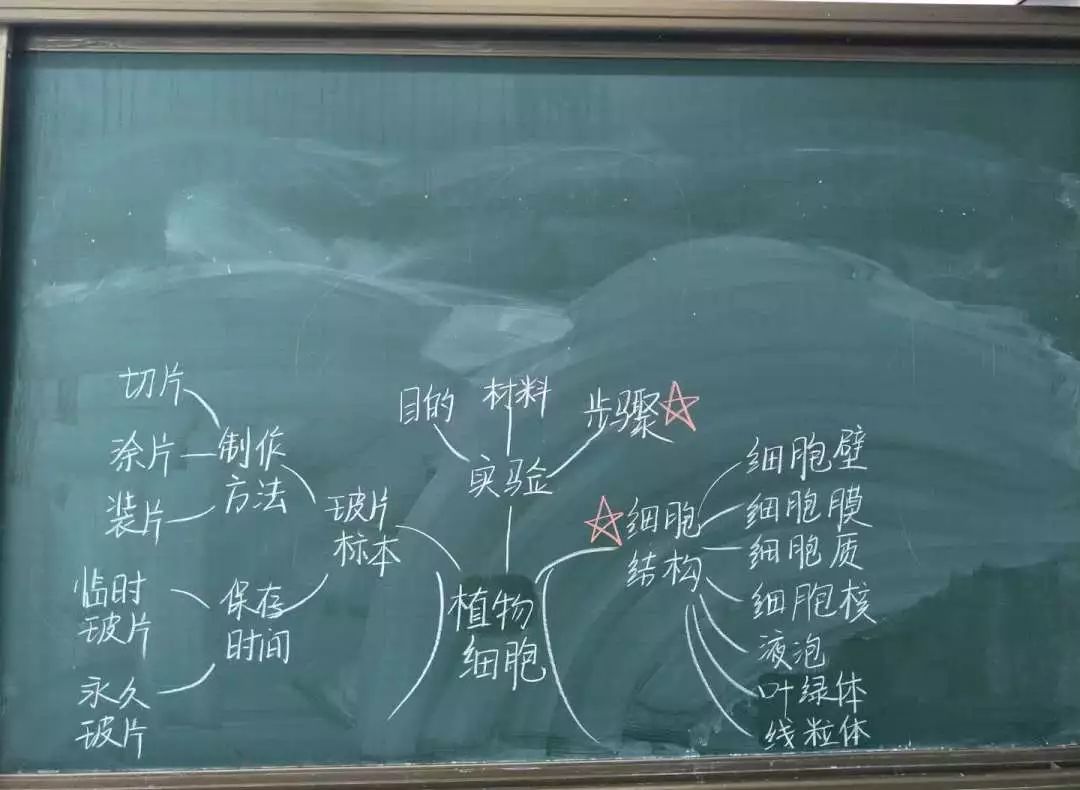 切片
涂片
装片
制作
方法
临时
玻片
永久
玻片
保存
时间
玻片
标本
目的
材料
步骤
实验
植物
细胞
细胞
结构
细胞壁
细胞膜
细胞质
细胞核
液泡
叶绿体
线粒体